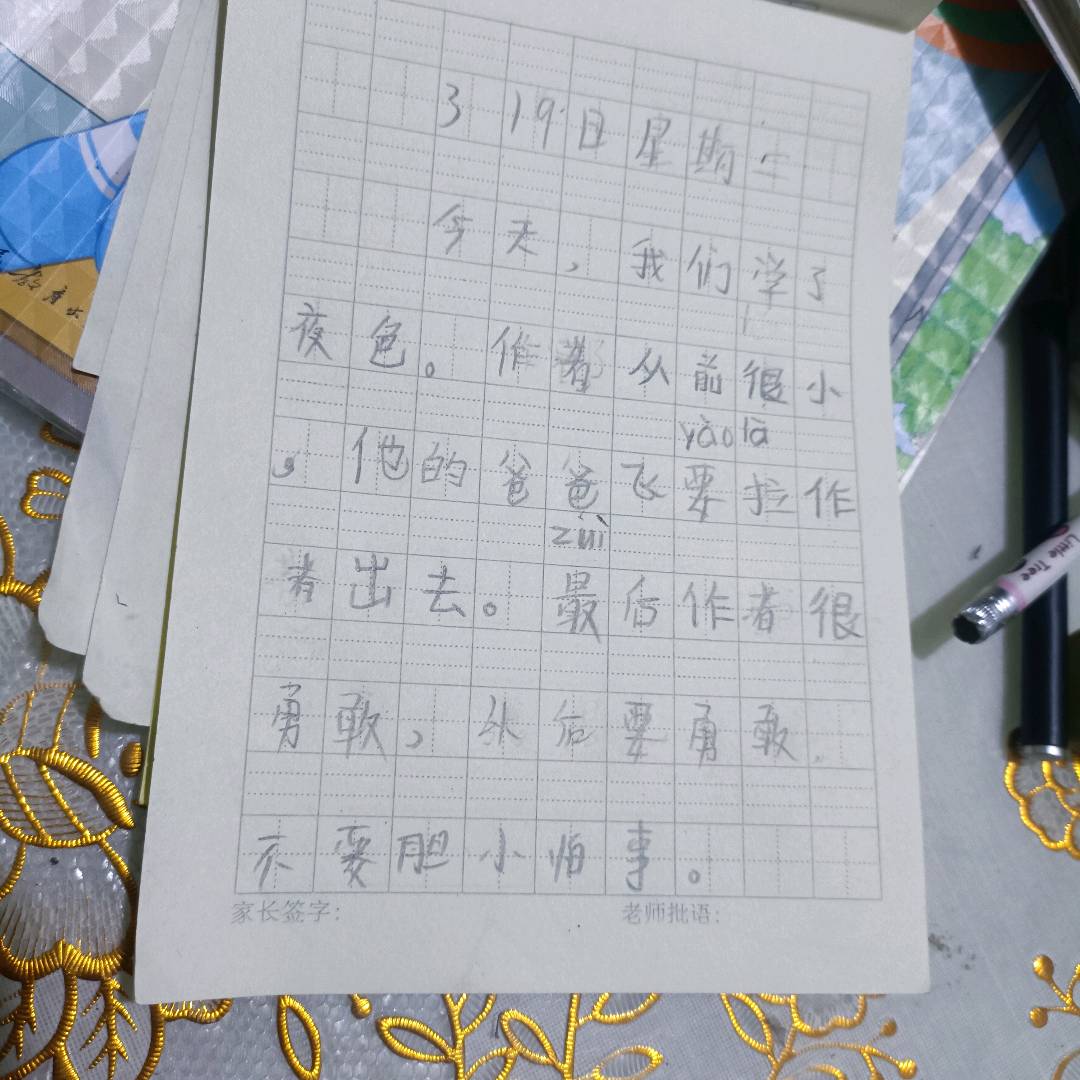 3 19日星期二
今天，我们学了
夜色。作者从前很小
yào là
，他的爸爸飞要拉作
zuì
者出去。最后作者很
勇敢，从后要勇敢，
不要胆小怕事。
家长签字：
老师批语：
Little Tree